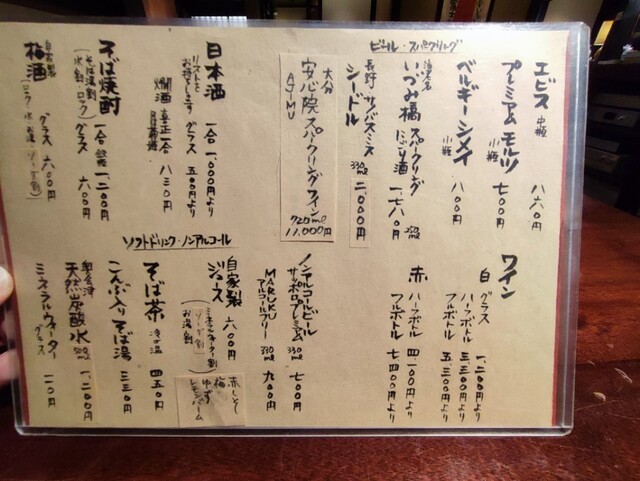 ビール・スパークリング
エビス 中瓶 八六〇円
プレミアムモルツ 小瓶 七〇〇円
ベルギーシメイ 小瓶 八〇〇円
海老名
いづみ橋 スパークリングにごり酒 250ml 一、七八〇円
長野・サノバスミス
シードル 330ml 二、〇〇〇円
大分
安心院スパークリングワイン
AJIMU 720ml 11,000円
日本酒 一合 一、〇〇〇円より
リストを
お持ちします グラス 五〇〇円より
燗酒 喜正一合 八三〇円
そば焼酎 一合 一、二〇〇円
(そば湯割
水割・ロック) グラス 六〇〇円
自家製
梅酒 グラス 六〇〇円
(ロック 水 お湯 ソーダ割)
ワイン
白 グラス 一、二〇〇円より
ハーフボトル 三、三〇〇円より
フルボトル 五、三〇〇円より
赤 ハーフボトル 四、一〇〇円より
フルボトル 七、四〇〇円より
ソフトドリンク・ノンアルコール
ノンアルコールビール
サッポロプレミアム 330ml 七〇〇円
MARUKU
アルコールフリー 330ml 九〇〇円
自家製 六〇〇円
ジュース (ミネラルウォーター割
ソーダ割
お湯割)
赤しそ
梅
ゆず
レモンバーム
そば茶 冷 or 温 四五〇円
こんぶ入りそば湯 三三〇円
奥会津
天然炭酸水 500ml 一、二〇〇円
ミネラルウォーター グラス 一一〇円